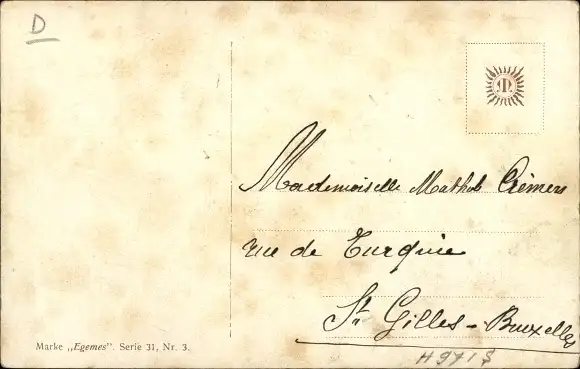 D
Mademoiselle Mathil Clémens
rue de Turquie
St Gilles-Bruxelles
Marke „Egemes". Serie 31, Nr. 3.